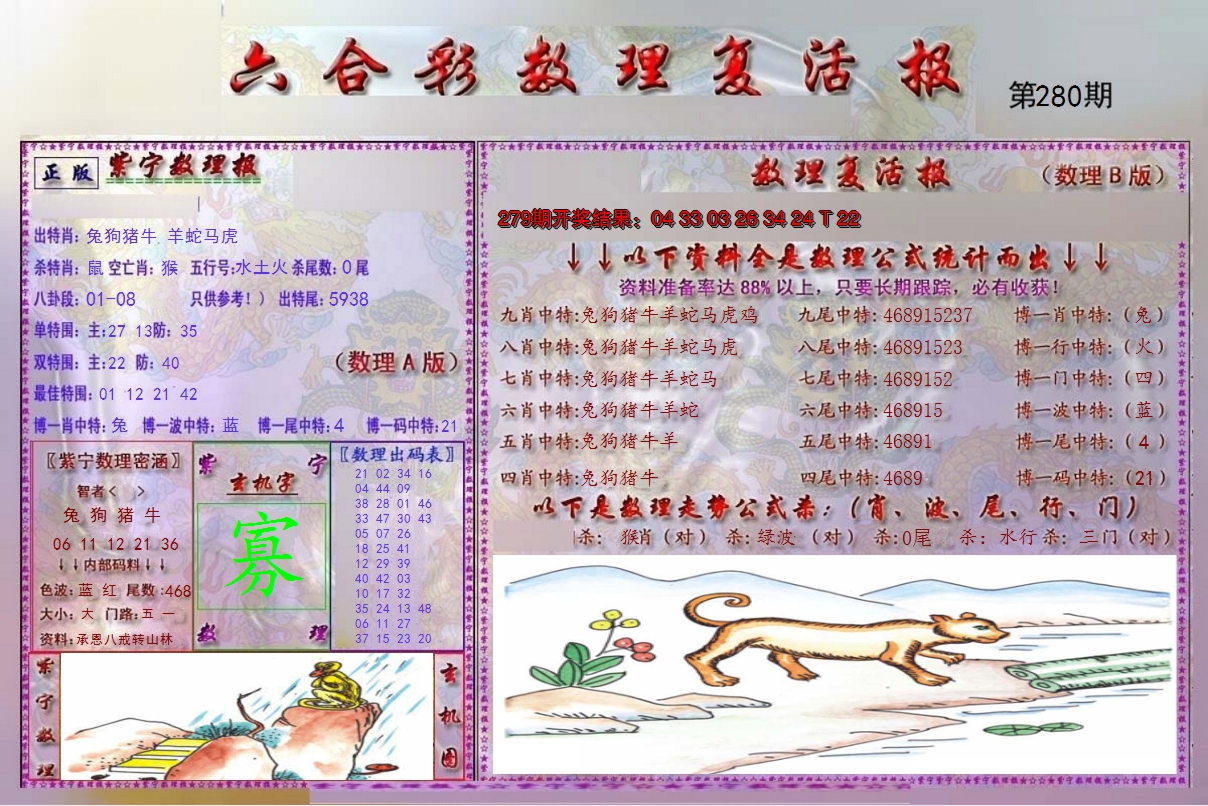 六合彩数理复活报
第280期
正版 紫宁数理报
出特肖: 兔狗猪牛 羊蛇马虎
杀特肖: 鼠 空亡肖: 猴 五行号:水土火 杀尾数: 0 尾
八卦段: 01-08 只供参考!) 出特尾: 5938
单特围: 主:27 13防: 35
双特围: 主:22 防: 40
(数理A版)
最佳特围: 01 12 21 42
博一肖中特: 兔 博一波中特: 蓝 博一尾中特: 4 博一码中特: 21
〖紫宁数理密涵〗
智者< >
兔 狗 猪 牛
06 11 12 21 36
↓↓内部码料↓↓
色波: 蓝 红 尾数:468
大小: 大 门路: 五 一
资料: 承恩八戒转山林
紫 宁
玄机字
寡
数 理
〖数理出码表〗
21 02 34 16
04 44 09
38 28 01 46
33 47 30 43
05 07 26
18 25 41
12 29 39
40 42 03
10 17 32
35 24 13 48
06 11 27
37 15 23 20
紫宁数理
玄机图
数理复活报
(数理B版)
279期开奖结果: 04 33 03 26 34 24 T 22
↓↓以下资料全是数理公式统计而出↓↓
资料准备率达 88% 以上, 只要长期跟踪, 必有收获!
九肖中特:兔狗猪牛羊蛇马虎鸡 九尾中特: 468915237 博一肖中特: (兔)
八肖中特:兔狗猪牛羊蛇马虎 八尾中特: 46891523 博一行中特: (火)
七肖中特:兔狗猪牛羊蛇马 七尾中特: 4689152 博一门中特: (四)
六肖中特:兔狗猪牛羊蛇 六尾中特: 468915 博一波中特: (蓝)
五肖中特:兔狗猪牛羊 五尾中特: 46891 博一尾中特: (4)
四肖中特:兔狗猪牛 四尾中特: 4689 博一码中特: (21)
以下是数理走势公式杀: (肖、波、尾、行、门)
杀: 猴肖 (对) 杀: 绿波 (对) 杀: 0尾 杀: 水行 杀: 三门 (对)